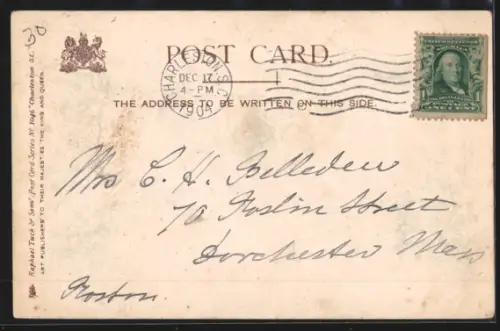 30
POST CARD.
CHARLESTON, S.C.
DEC 17
4-PM
1904
THE ADDRESS TO BE WRITTEN ON THIS SIDE.
Mrs C. H. Belledeu
70 Roslin Street
Dorchester Mass
Boston
Raphael Tuck & Sons' Post Card Series
"Charleston S.C.
ART PUBLISHERS TO THEIR MAJESTIES THE KING AND QUEEN.